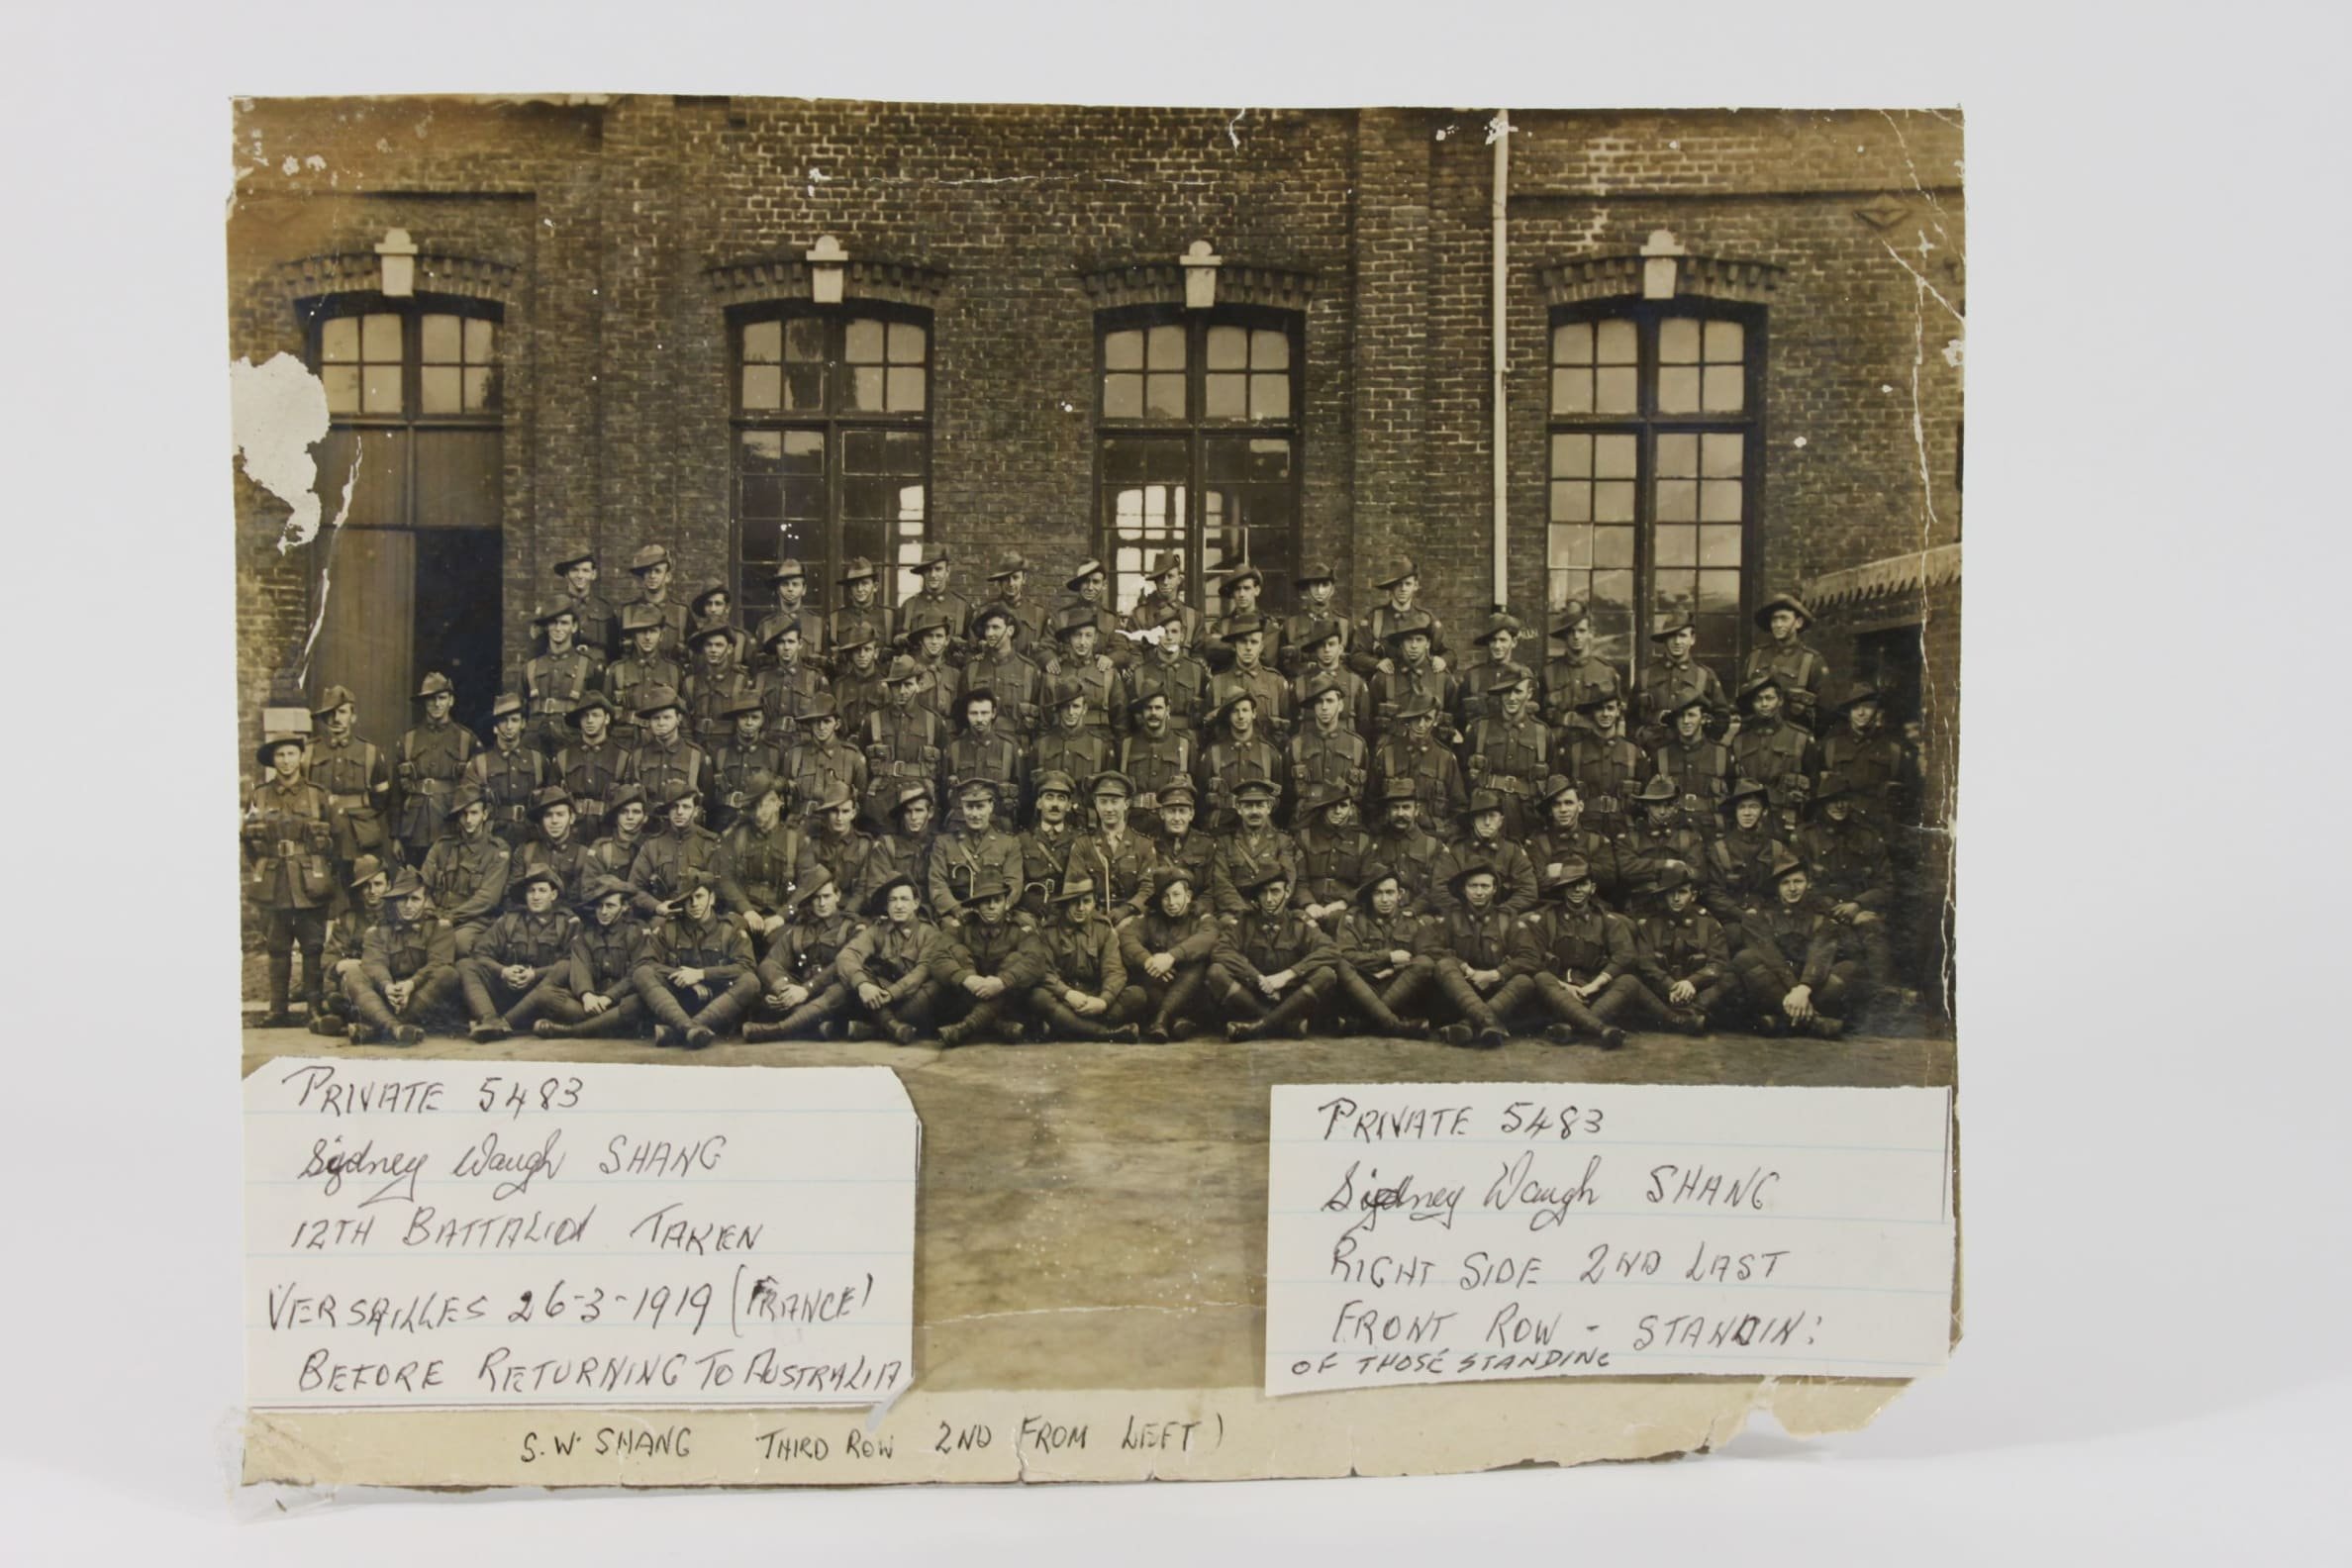 PRIVATE 5483
Sydney Waugh SHANG
12TH BATTALION TAKEN
VERSAILLES 26-3-1919 (FRANCE)
BEFORE RETURNING TO AUSTRALIA
PRIVATE 5483
Sydney Waugh SHANG
RIGHT SIDE 2ND LAST
FRONT ROW - STANDIN:
OF THOSE STANDING
S.W. SHANG THIRD ROW 2ND FROM LEFT)